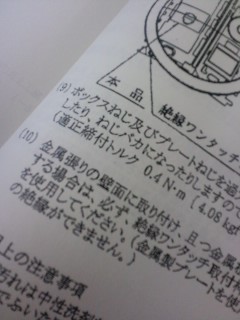 本品
絶縁ワンタッチ
(9) ボックスねじ及びプレートねじを過
したり、ねじバカになったりしますので
(適正締付トルク 0.4 N・m {4.08 kgf
(10) 金属張りの壁面に取り付け、且つ金属製
する場合は、必ず 絶縁ワンタッチ取付枠
を使用してください。(金属製プレートを使
の絶縁ができません。)
上の注意事項
汚れは中性洗剤
でふいた